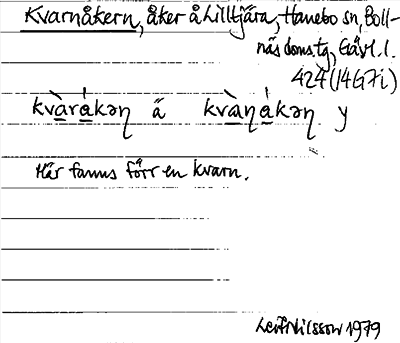 Kvarnåkern, åker å Lilltjära, Hanebo sn, Boll-
näs domstg, Gävl. l.
424 (14G7i)
kvàrákəη ä kvàηákəη y
Här fanns förr en kvarn.
Leif Nilsson 1979